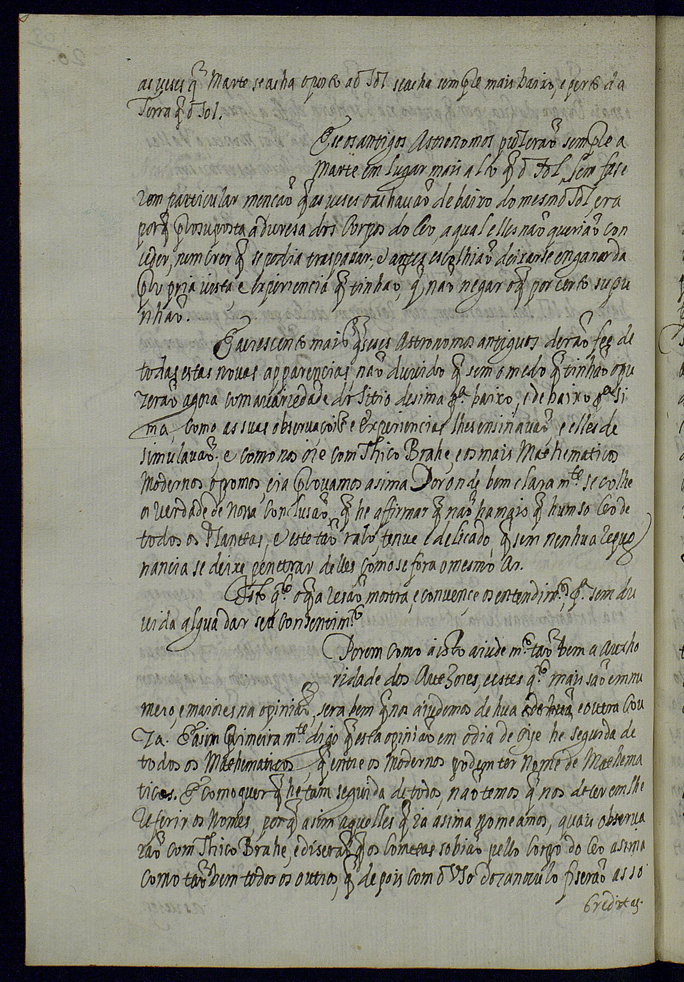 as veses q̃ Marte se acha oposto ao Sol se acha sempre mais baixo, e perto da
Terra q̃ o Sol.
E se os antigos Astronomos puserão sempre a
Marte em lugar mais alto q̃ o Sol, sem fase
rem particular menção q̃ as veses o achavão de baixo do mesmo Sol era
porq̃ prosuposta a duresa dos Corpos do Ceo a qual elles não querião con
ceder, nem crer q̃ se podia traspasar, e antes escolhião deixarse enganar da
propria vista, e experiencia q̃ tinhão, q̃ não negar o q̃ por certo supu
nhão.
E acrescento mais q̃ se esses Astronomos antiguos derão fee de
todas estas novas apparencias não duvido q̃ sem o medo q̃ tinhão o pu
zerão agora com a variedade do Sitio de sima pª baixo, e de baixo pª si
ma, como as suas observaçois e Experiencias lhes ensinavão, e elles de
simulavão. e como nos oie com Thico Brahe, e os mais Mathematicos
Modernos o pomos, e ia provamos asima Por onde bem e clara mte se colhe
a verdade de nova Conclusão, q̃ he affirmar q̃ não ha mais q̃ hum so Ceo de
todos os Planetas, e este tão ralo, tenue e delicado, q̃ sem nenhua repug
nancia se deixe penetrar delles como se fora o mesmo Ar.
Isto q̃ o q̃ a resão mostra, e convence os entendimtos pª sem du
vida algua dar seu consentimto
Porem como a isto aiude mto tão bem a Autho
ridade dos Authores, e estes q̃ mais são em nu
mero, e maiores na opinião, sera bem q̃ nos aiudemos de hua e outra Cou
za. E asim primeira mte digo q̃ esta opinião em o dia de oye he seguida de
todos os Mathematicos, q̃ entre os Modernos podem ter nome de Mathema
ticos. E como quer q̃ he tam seguida de todos, não temos q̃ nos deter em lhe
referir os Nomes, porq̃ asim aquelles q̃ ia asima nomeamos, quais observa
rão com Thico Brahe, e diserão q̃ os Cometas sobião pello Corpo do Ceo asima
como tão bem todos os outros, q̃ de pois com o Vso do canoculo fiserão as so
breditas